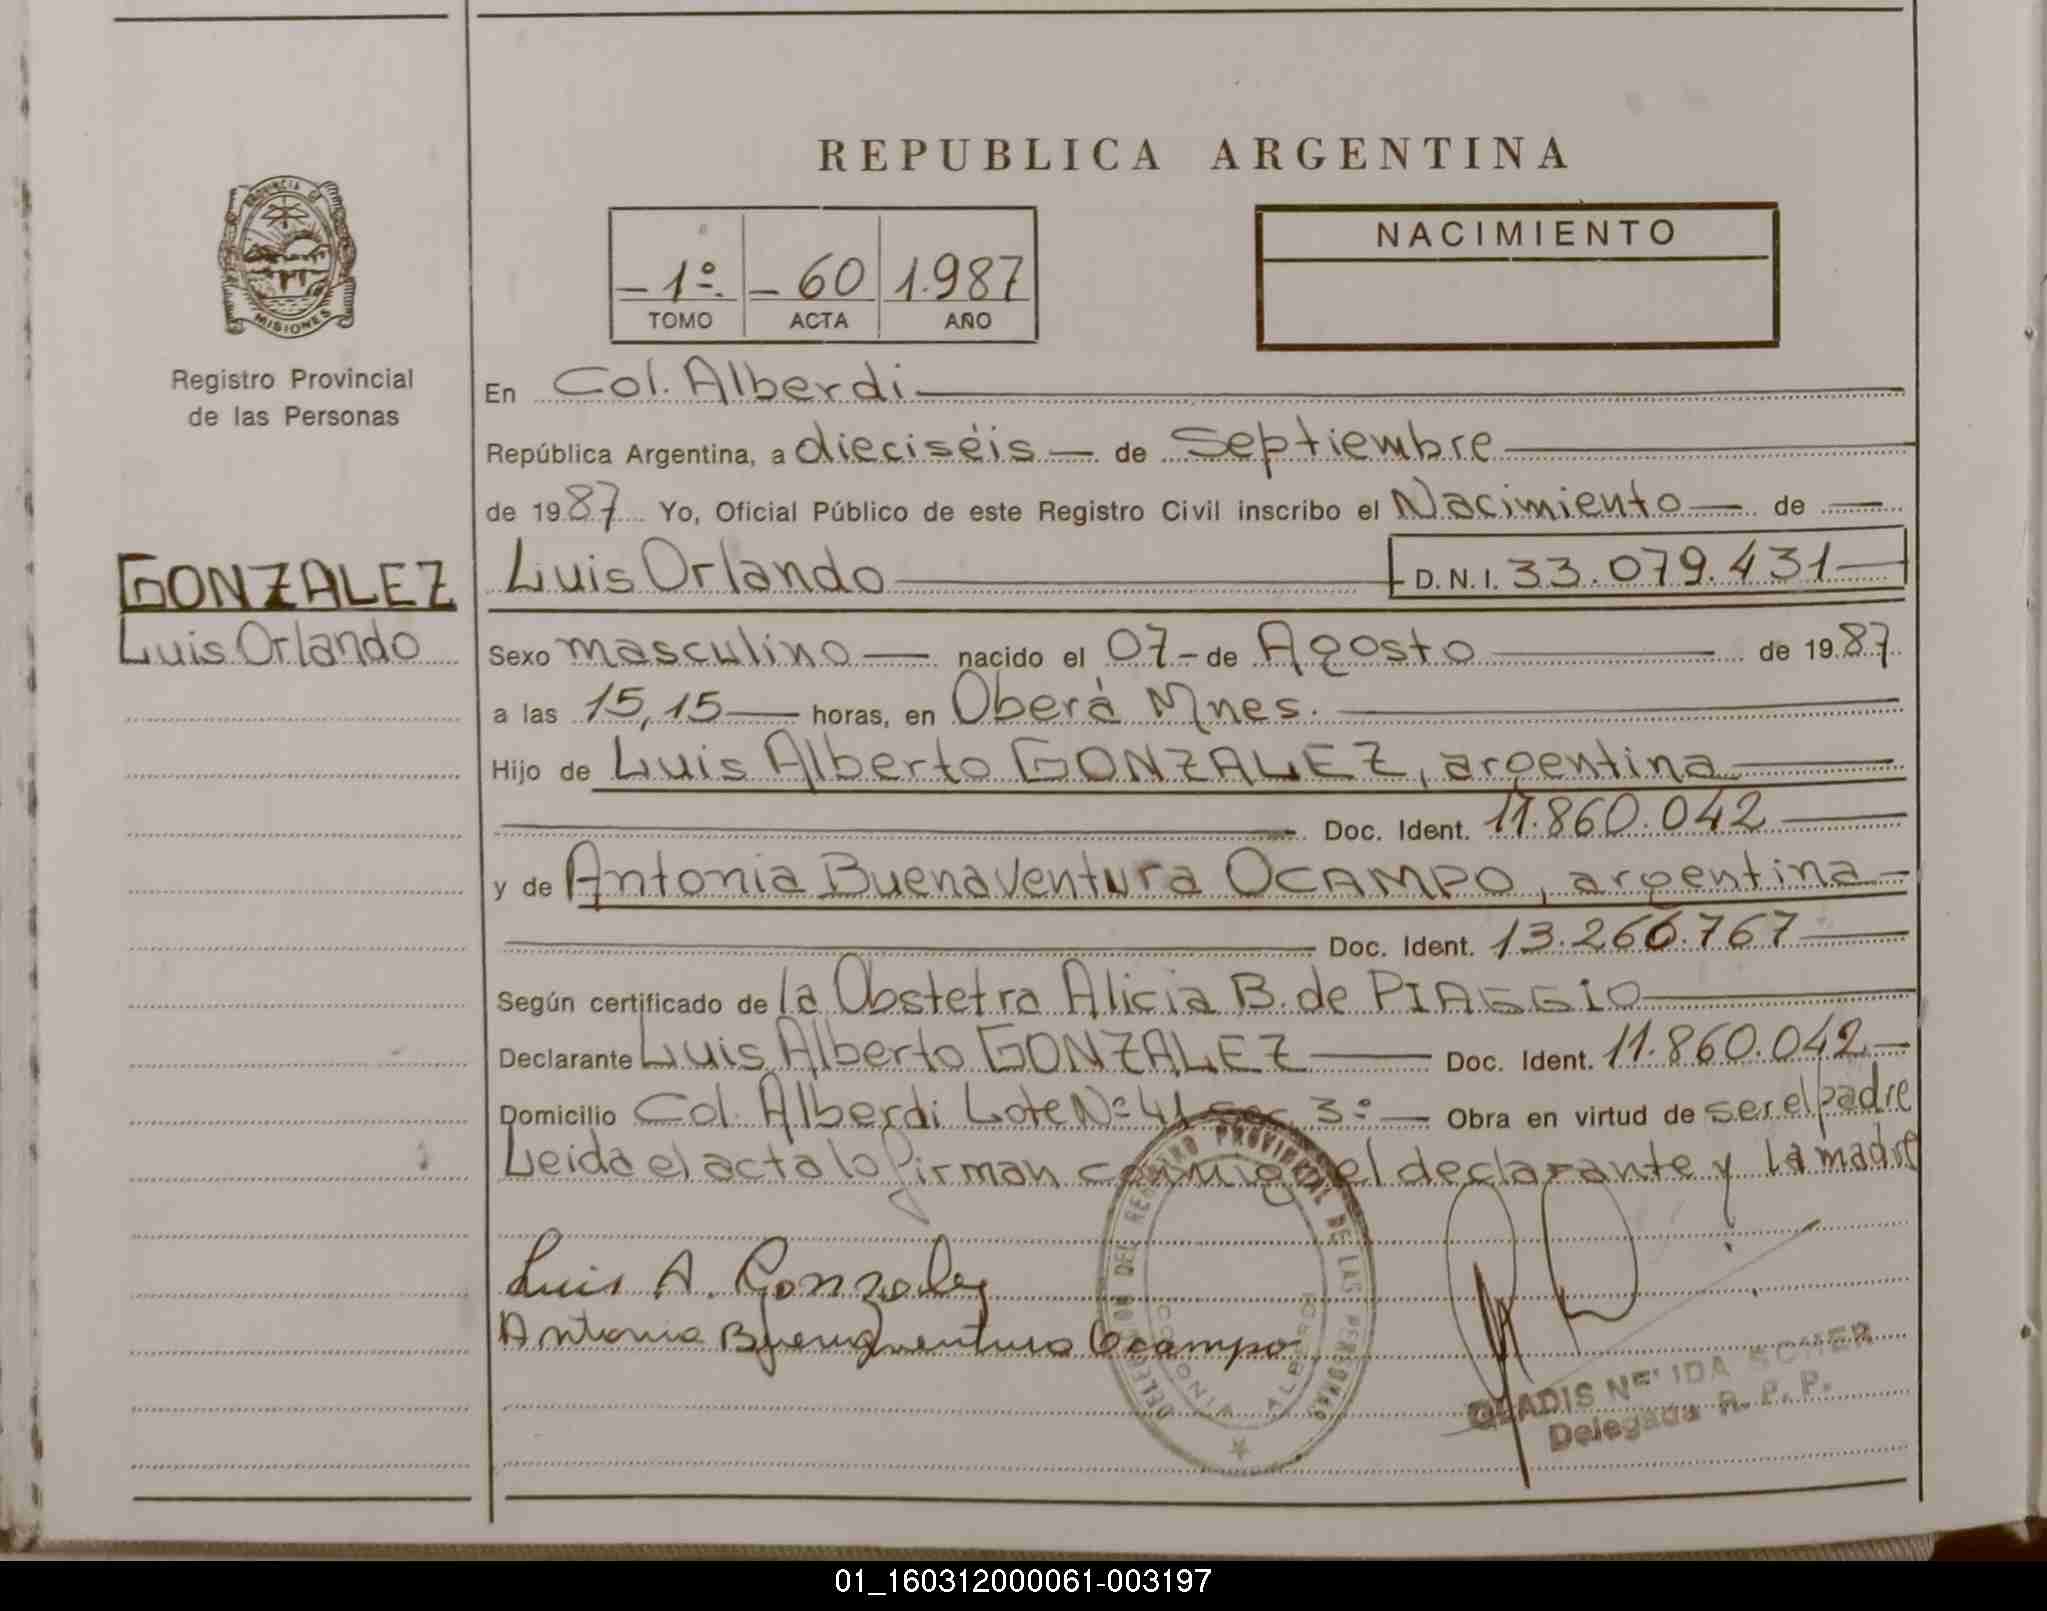 REPUBLICA ARGENTINA
PROVINCIA DE
MISIONES
Registro Provincial
de las Personas
- 1º - 60 1.987
TOMO ACTA AÑO
NACIMIENTO
En Col. Alberdi
República Argentina, a dieciséis de Septiembre
de 1987 Yo, Oficial Público de este Registro Civil inscribo el Nacimiento de
GONZALEZ
Luis Orlando
Luis Orlando D.N.I. 33.079.431
Sexo masculino nacido el 07 - de Agosto de 1987
a las 15,15 horas, en Oberá Mnes.
Hijo de Luis Alberto GONZALEZ, argentina
Doc. Ident. 11.860.042
y de Antonia Buenaventura OCAMPO, argentina
Doc. Ident. 13.266.767
Según certificado de la Obstetra Alicia B. de PIAGGIO
Declarante Luis Alberto GONZALEZ Doc. Ident. 11.860.042
Domicilio Col. Alberdi Lote Nº 41 sec. 3º Obra en virtud de ser el padre
Leida el acta lo firman conmigo el declarante y la madre
Luis A. Gonzalez
Antonia Buenaventura Ocampo
DELEGACION DEL REGISTRO PROVINCIAL DE LAS PERSONAS
COLONIA ALBERDI
GLADIS NELIDA SCHER
Delegada R. P. P.
01_160312000061-003197